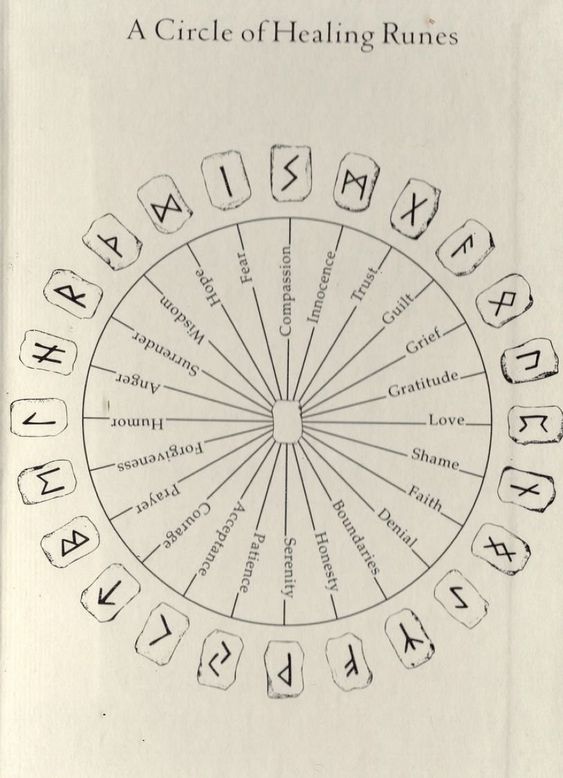 A Circle of Healing Runes
Compassion
Innocence
Trust
Guilt
Grief
Gratitude
Love
Shame
Faith
Denial
Boundaries
Honesty
Serenity
Patience
Acceptance
Courage
Prayer
Forgiveness
Humor
Anger
Surrender
Wisdom
Hope
Fear